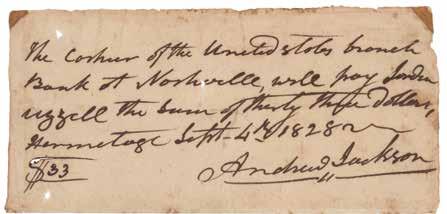 The Cashier of the United states branch
Bank at Nashville, will pay Jordan
uzzell the sum of thirty three dollars,
Hermitage Sept. 4th 1828
$33
Andrew Jackson